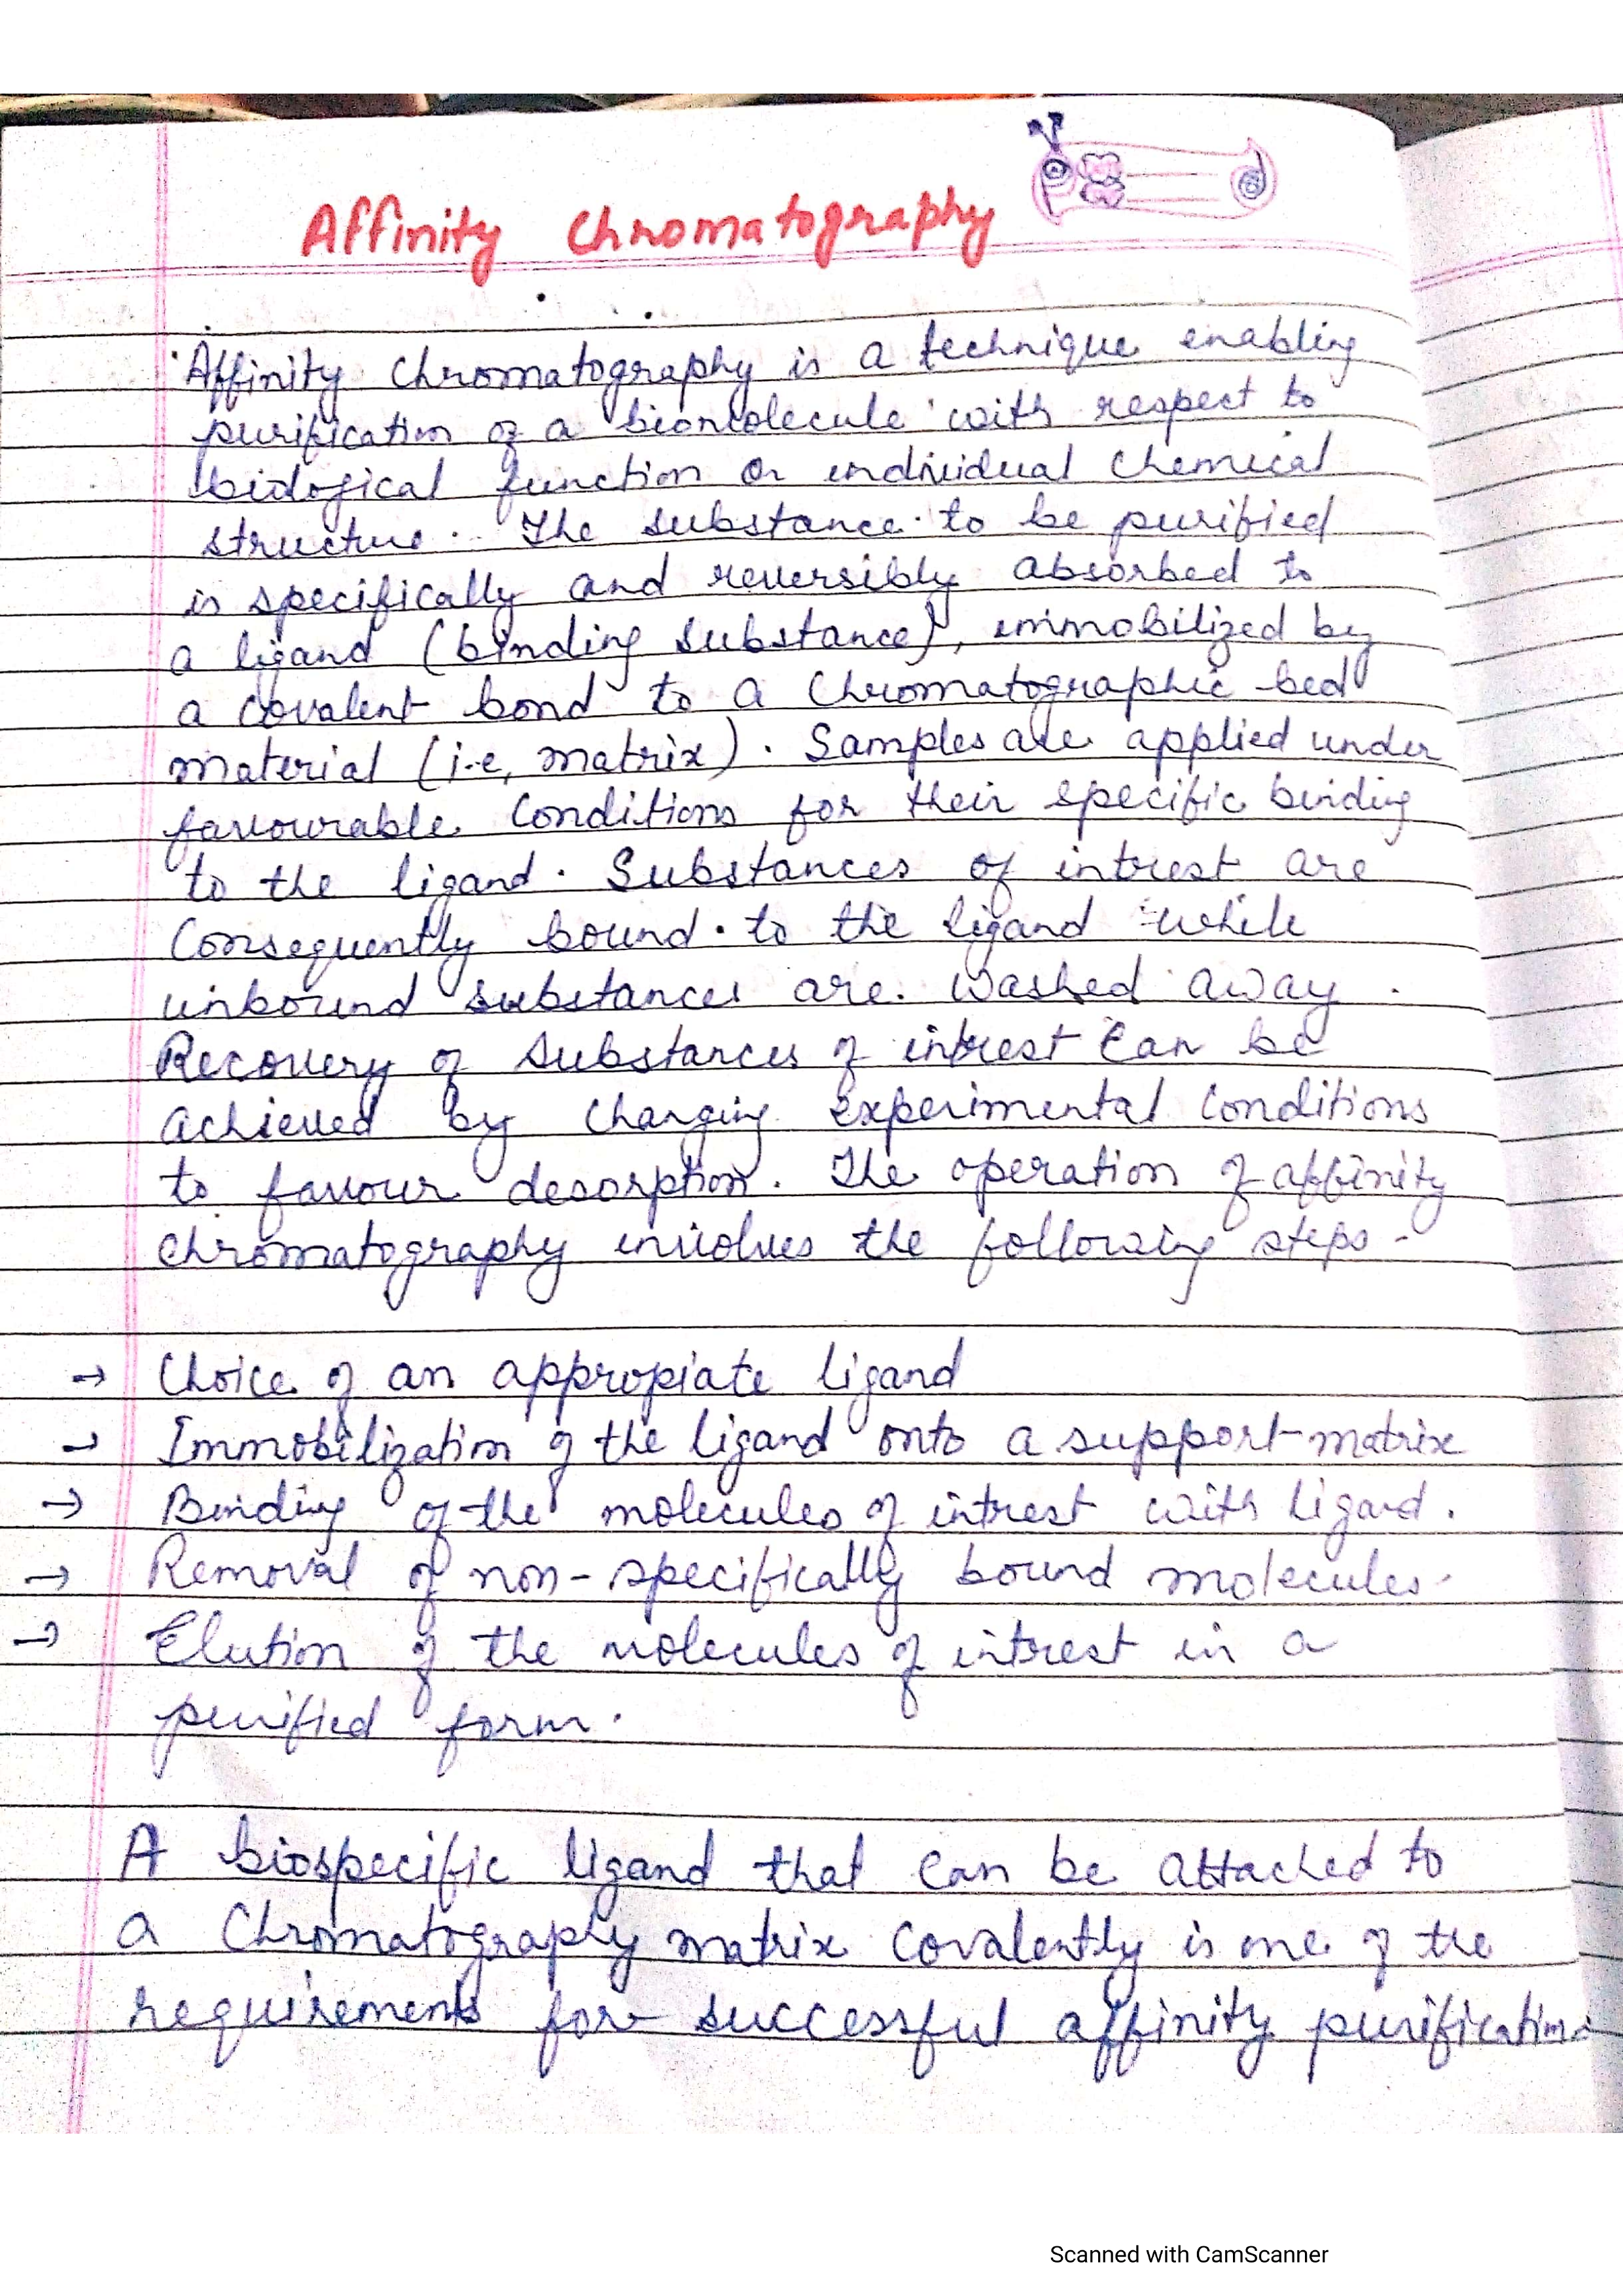 Affinity Chromatography
Affinity Chromatography is a technique enabling
purification of a biomolecule with respect to
biological function or individual chemical
structure. The substance to be purified
is specifically and reversibly absorbed to
a ligand (binding substance), immobilized by
a covalent bond to a Chromatographic bed
material (i.e, matrix). Samples are applied under
favourable Conditions for their specific binding
to the ligand. Substances of intrest are
Consequently bound to the ligand while
unbound substances are washed away.
Recovery of substances of intrest can be
achieved by changing experimental conditions
to favour desorption. The operation of affinity
chromatography involves the following steps -
→ Choice of an appropiate ligand
→ Immobilization of the ligand onto a support-matrix
→ Binding of the molecules of intrest with ligand.
→ Removal of non-specifically bound molecules.
→ Elution of the molecules of intrest in a
purified form.
A biospecific ligand that can be attached to
a Chromatography matrix covalently is one of the
requirements for successful affinity purification.
Scanned with CamScanner